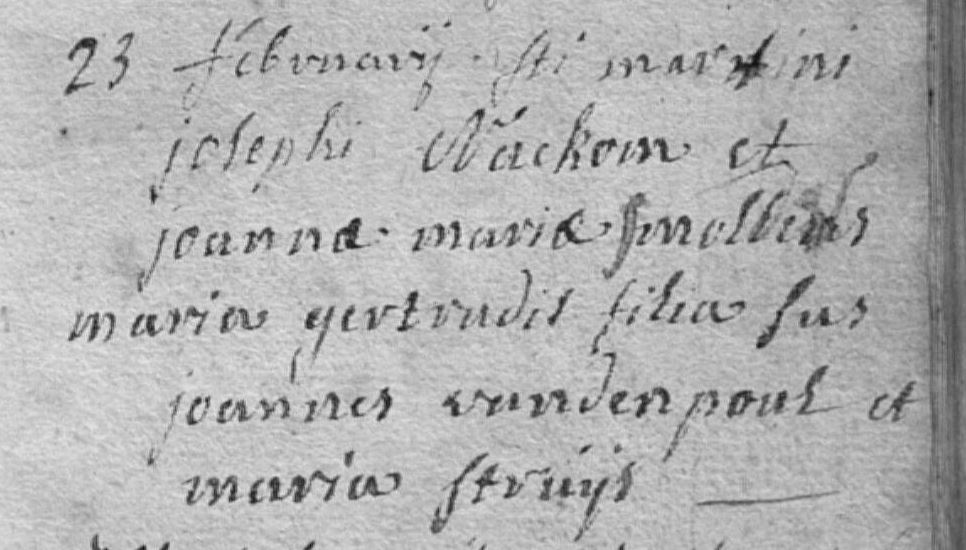 23 februarij sti martini
josephi Wäckom et
joannæ mariæ smolders
maria gertrudis filia sus
joannes vanden poul et
maria struijs